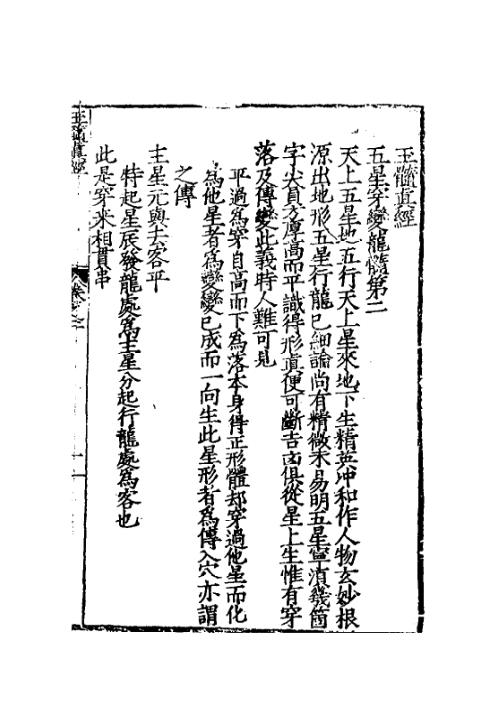 玉髓真經
五星穿變龍髓第二
天上五星地五行天上星來地下生精英冲和作人物玄妙根
源出地形五星行龍已細論尚有精微未易明五星寧湏幾箇
字尖貟方厚高而平識得形真便可斷吉凶俱從星上生惟有穿
落及傳變此義時人難可見
平過爲穿自高而下爲落本身得正形體却穿過他星而化
爲他星者爲變變已成而一向生此星形者爲傳入穴亦謂
之傳
主星元與去客平
特起星辰發龍處爲主星分起行龍處爲客也
此是穿來相貫串
玉髓真經